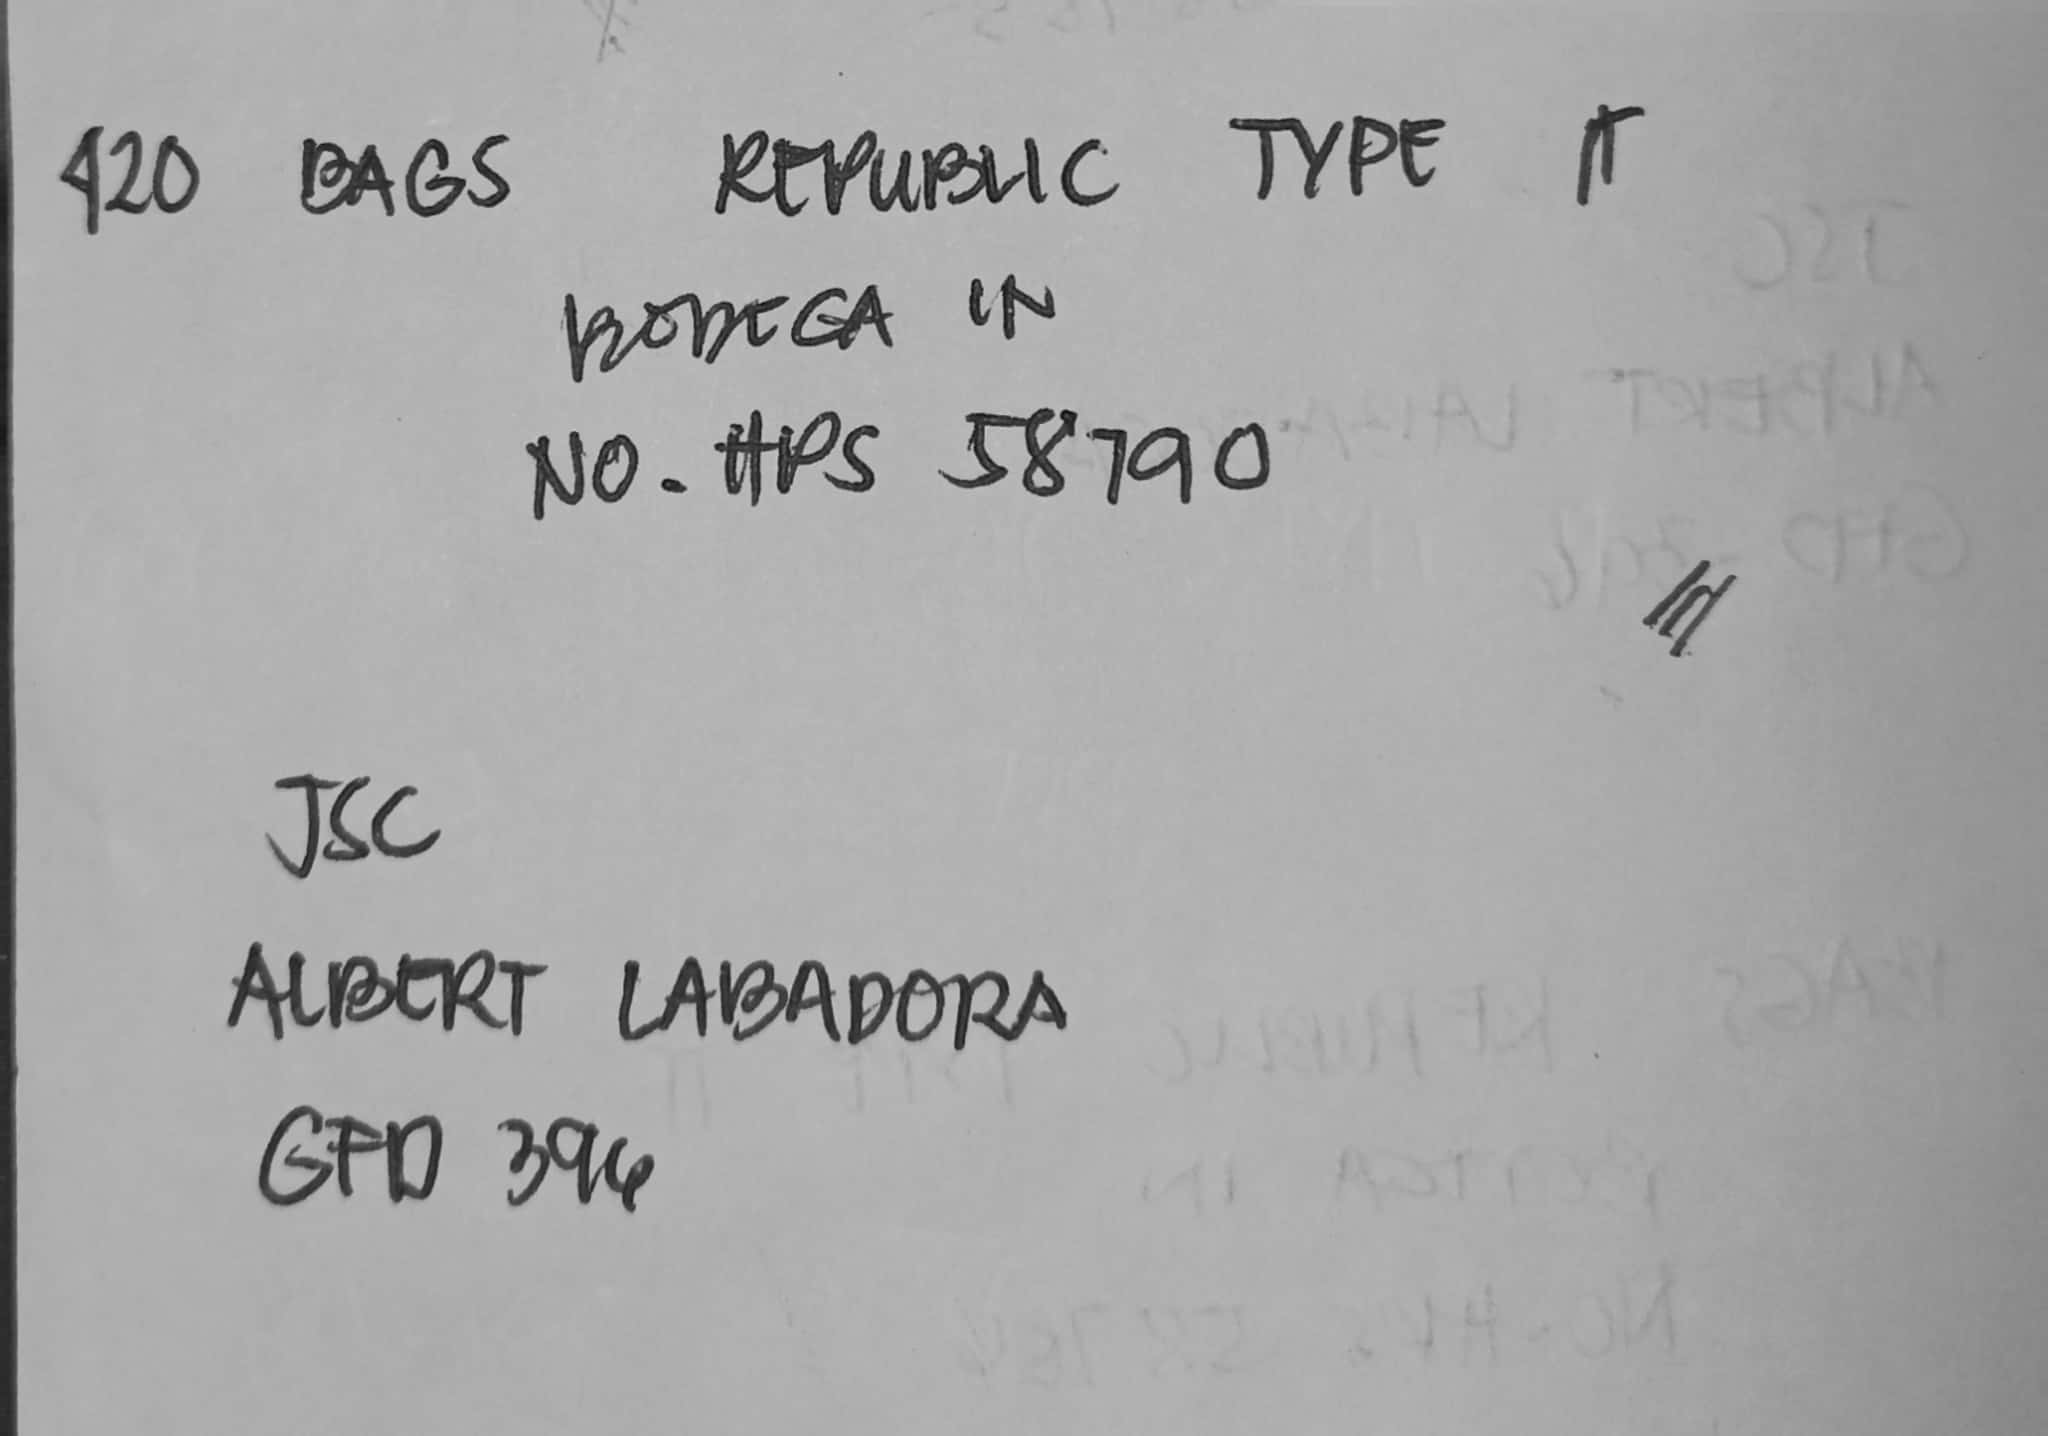 420 BAGS REPUBLIC TYPE II
BODEGA IN
NO. HPS 58790
JSC
ALBERT LABADORA
GFD 396